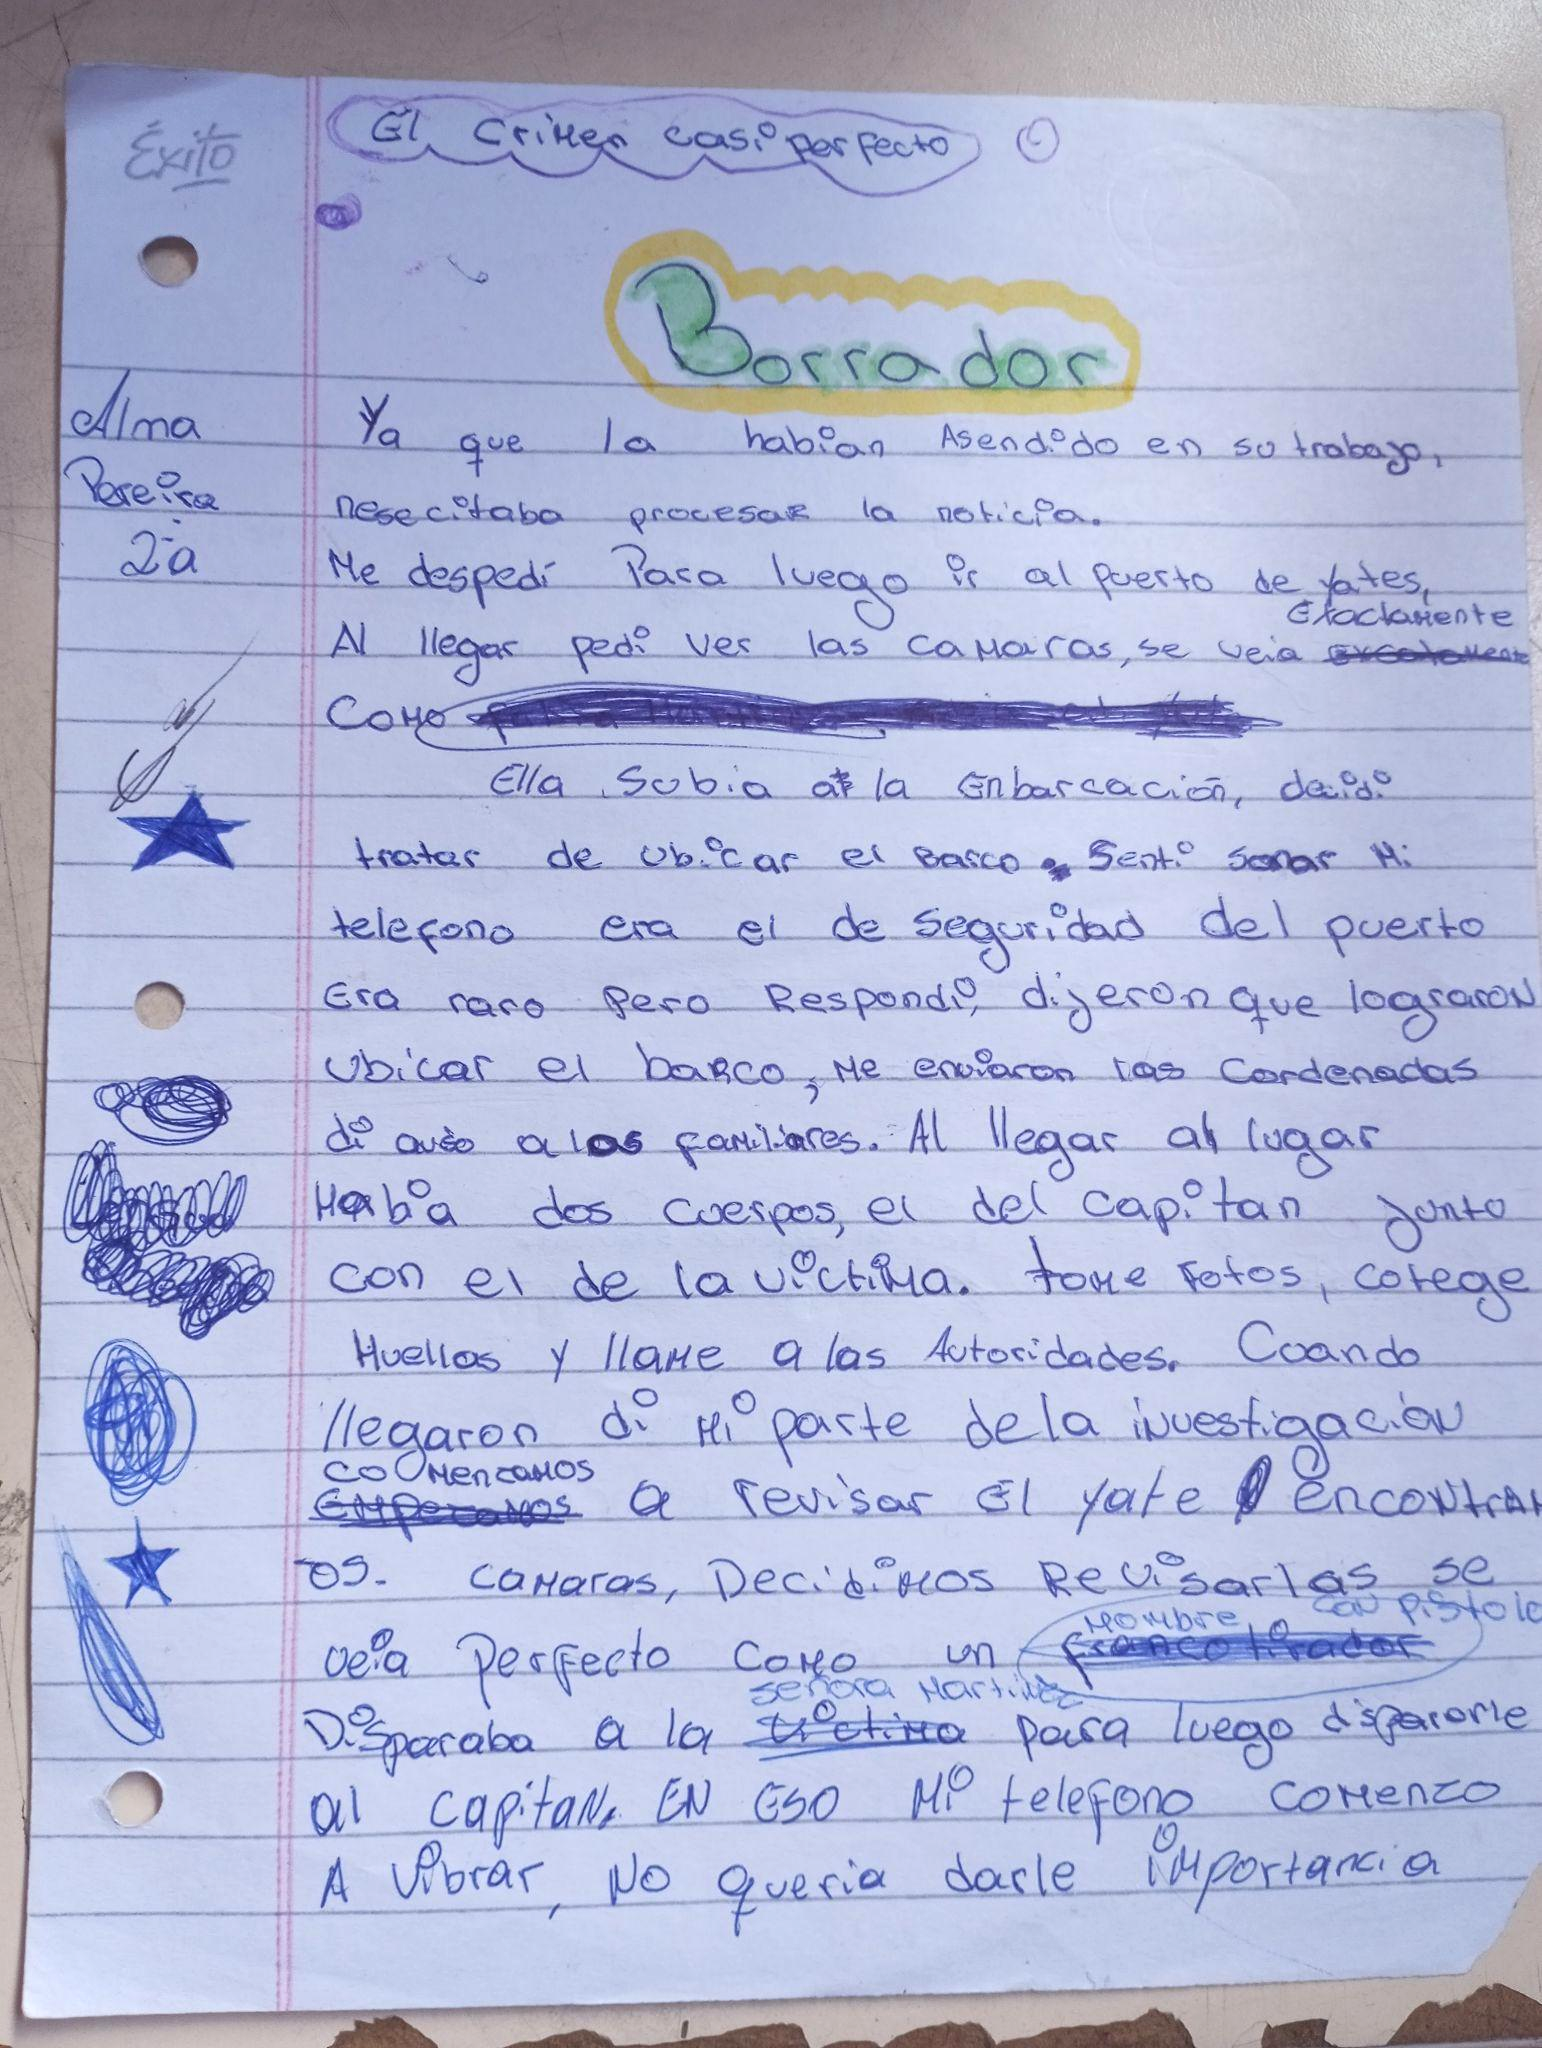 Éxito
El Crimen casi perfecto
Borrador
Alma
Pereira
2ºa
Ya que la habían Asendido en su trabajo,
nesecitaba procesar la noticia.
Me despedí Para luego ir al puerto de yates,
Al llegar pedi ver las camaras, se veia Exactamente
Como
Ella subia a la Enbarcación, decidi
tratar de ubicar el Barco. Senti sonar Mi
telefono era el de seguridad del puerto
Era raro Pero Respondi, dijeron que lograron
Ubicar el barco, Me enviaron las Cordenadas
di aviso a los familiares. Al llegar al lugar
Habia dos cuerpos, el del capitan junto
con el de la victima. tome Fotos, cotege
Huellas y llame a las Autoridades. Cuando
llegaron di Mi parte de la investigación
comenzamos a revisar El yate encontram
os. camaras, Decidimos Revisarlas se
veia Perfecto Como un Hombre con pistola
Disparaba a la señora Martinez para luego dispararle
al capitan, EN ESO Mi telefono comenzo
A Vibrar, No queria darle importancia